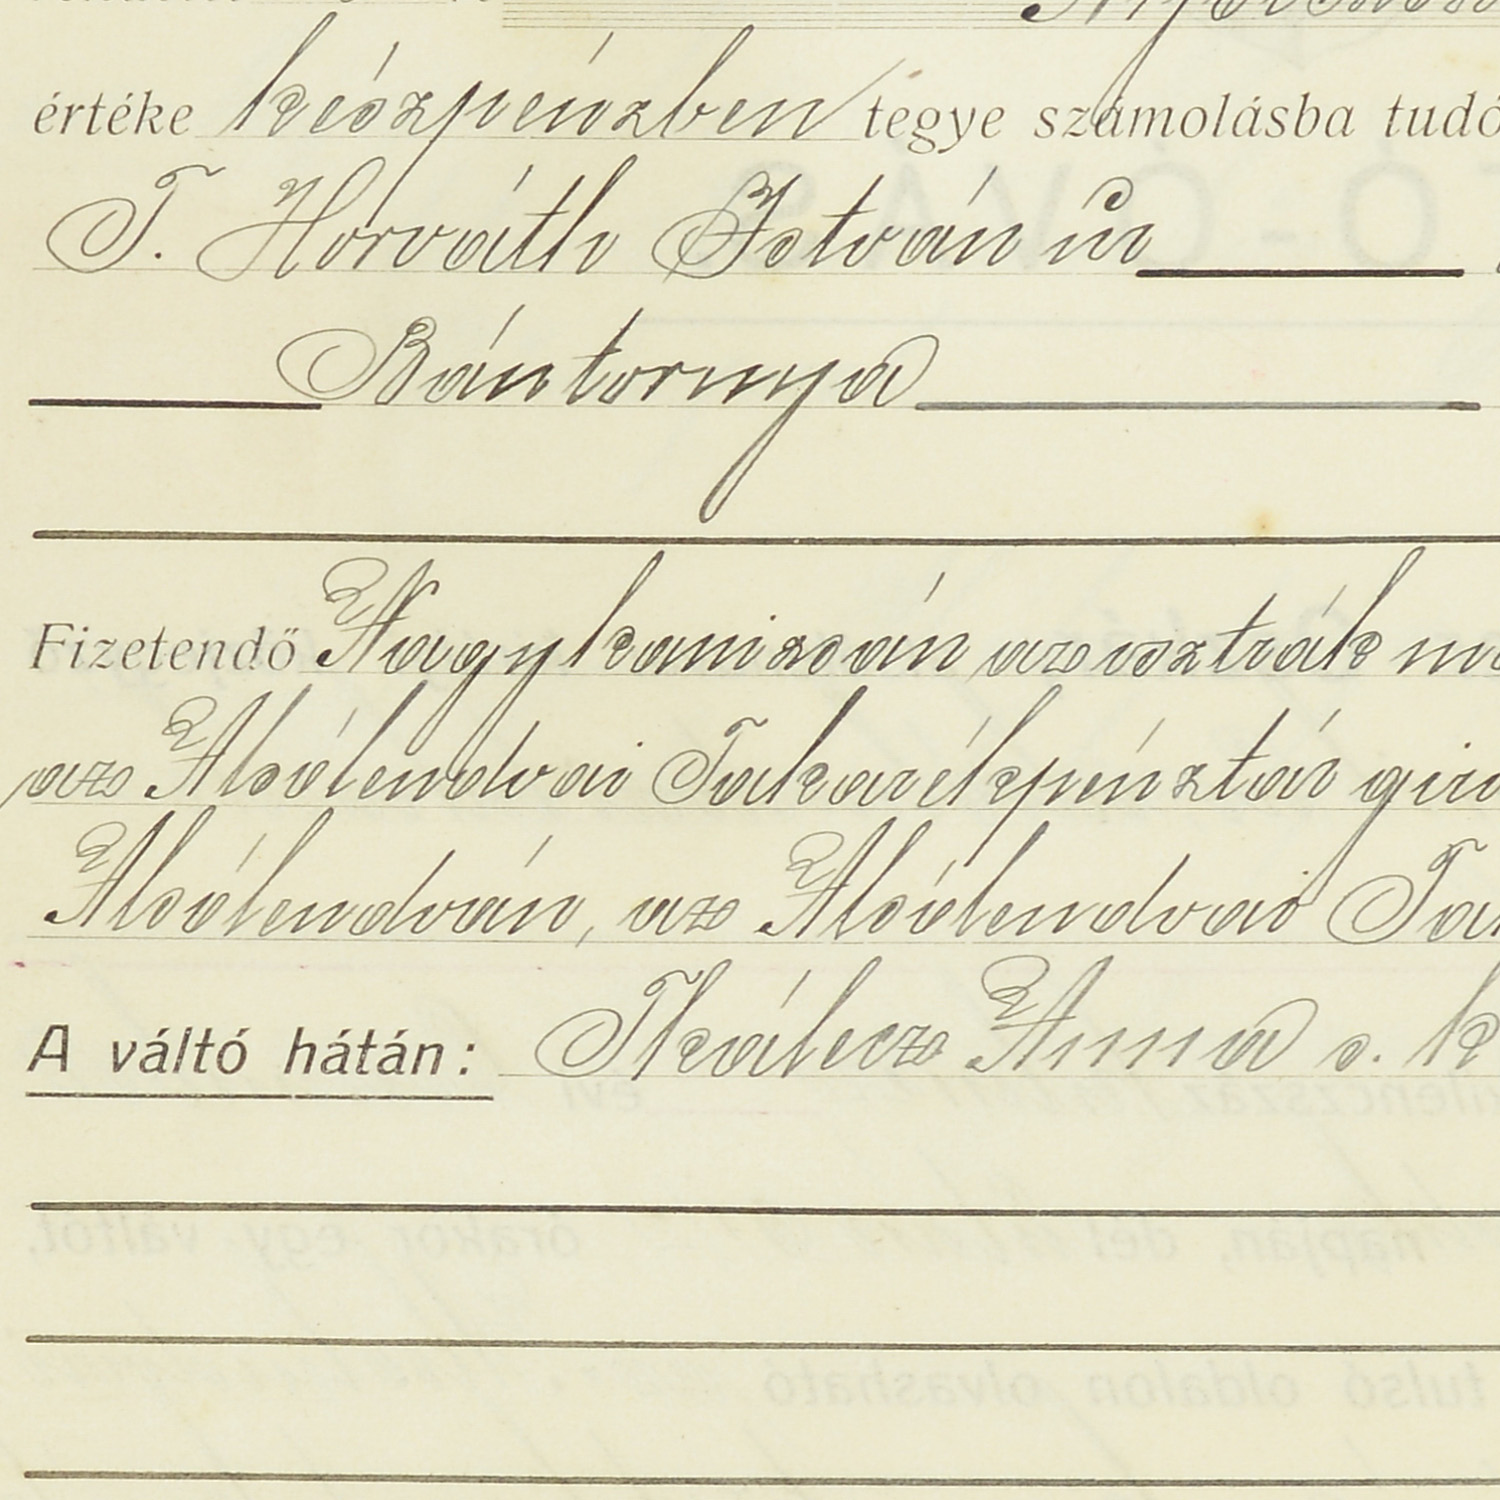 értéke készpénzben tegye számolásba tudó
T. Horváth István úr
Bántornya
Fizetendő Nagykanizsán az osztrák
az Alsólendvai Takarékpénztár
Alsólendván, az Alsólendvai
A váltó hátán: Tkálecz Anna s. k